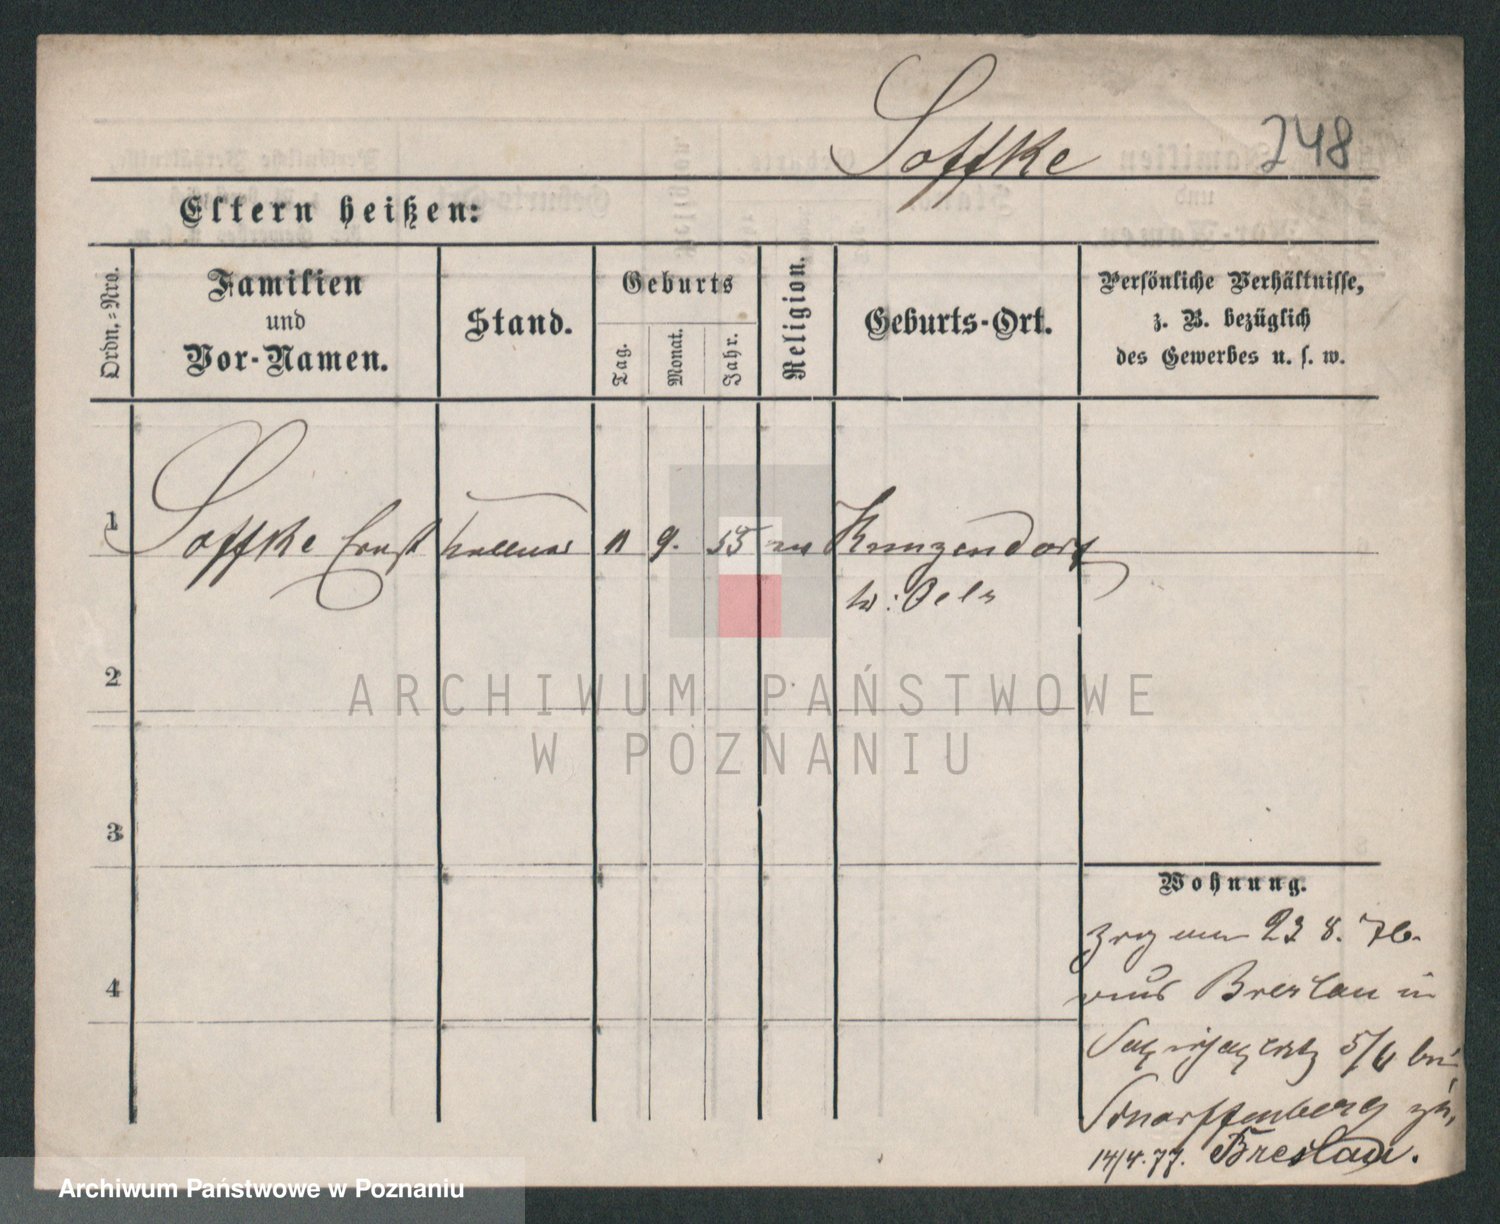 Soffke 248
Eltern heißen:
Ordn.=Nro.
Familien
und
Vor-Namen.
Stand.
Geburts
Tag.
Monat.
Jahr.
Religion.
Geburts-Ort.
Persönliche Verhältnisse,
z. B. bezüglich
des Gewerbes u. s. w.
1 Soffke Ernst 11 9. 55 Kunzendorf
Oels
2
ARCHIWUM PAŃSTWOWE
W POZNANIU
3
Wohnung.
am 23 8. 76.
aus Breslau in
5/6 bei
Scharffenberg
4
14/4.77. Breslau.
Archiwum Państwowe w Poznaniu